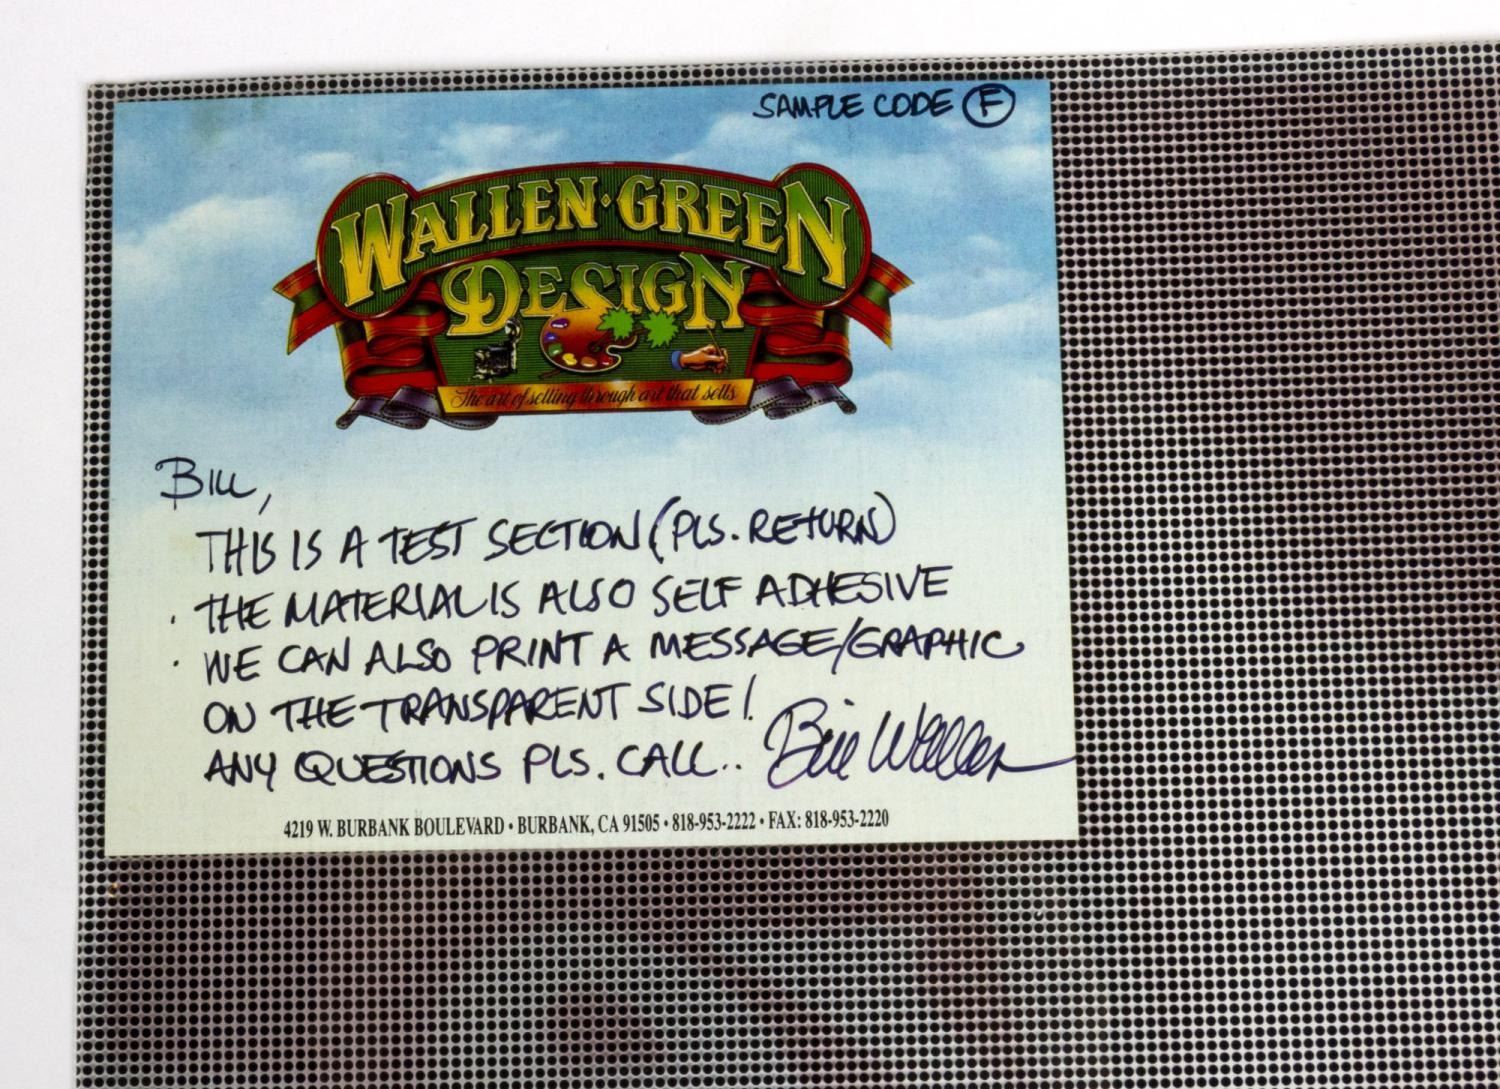 SAMPLE CODE F
WALLEN·GREEN
DESIGN
The art of selling through art that sells
BILL,
THIS IS A TEST SECTION (PLS. RETURN)
· THE MATERIAL IS ALSO SELF ADHESIVE
· WE CAN ALSO PRINT A MESSAGE/GRAPHIC
ON THE TRANSPARENT SIDE!
ANY QUESTIONS PLS. CALL.. Bill Wallen
4219 W. BURBANK BOULEVARD • BURBANK, CA 91505 • 818-953-2222 • FAX: 818-953-2220